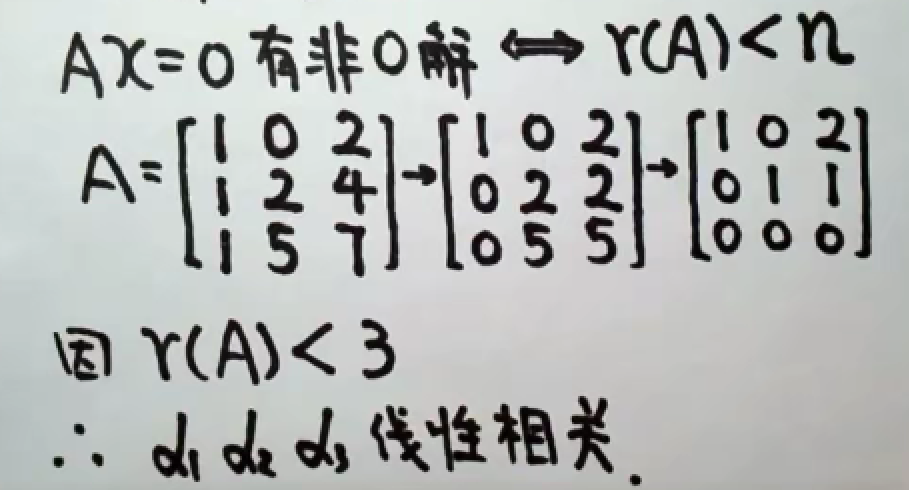 AX=0有非0解 ⟺ r(A)<n
A=[1 0 2; 1 2 4; 1 5 7]→[1 0 2; 0 2 2; 0 5 5]→[1 0 2; 0 1 1; 0 0 0]
因 r(A)<3
∴ α₁ α₂ α₃ 线性相关.